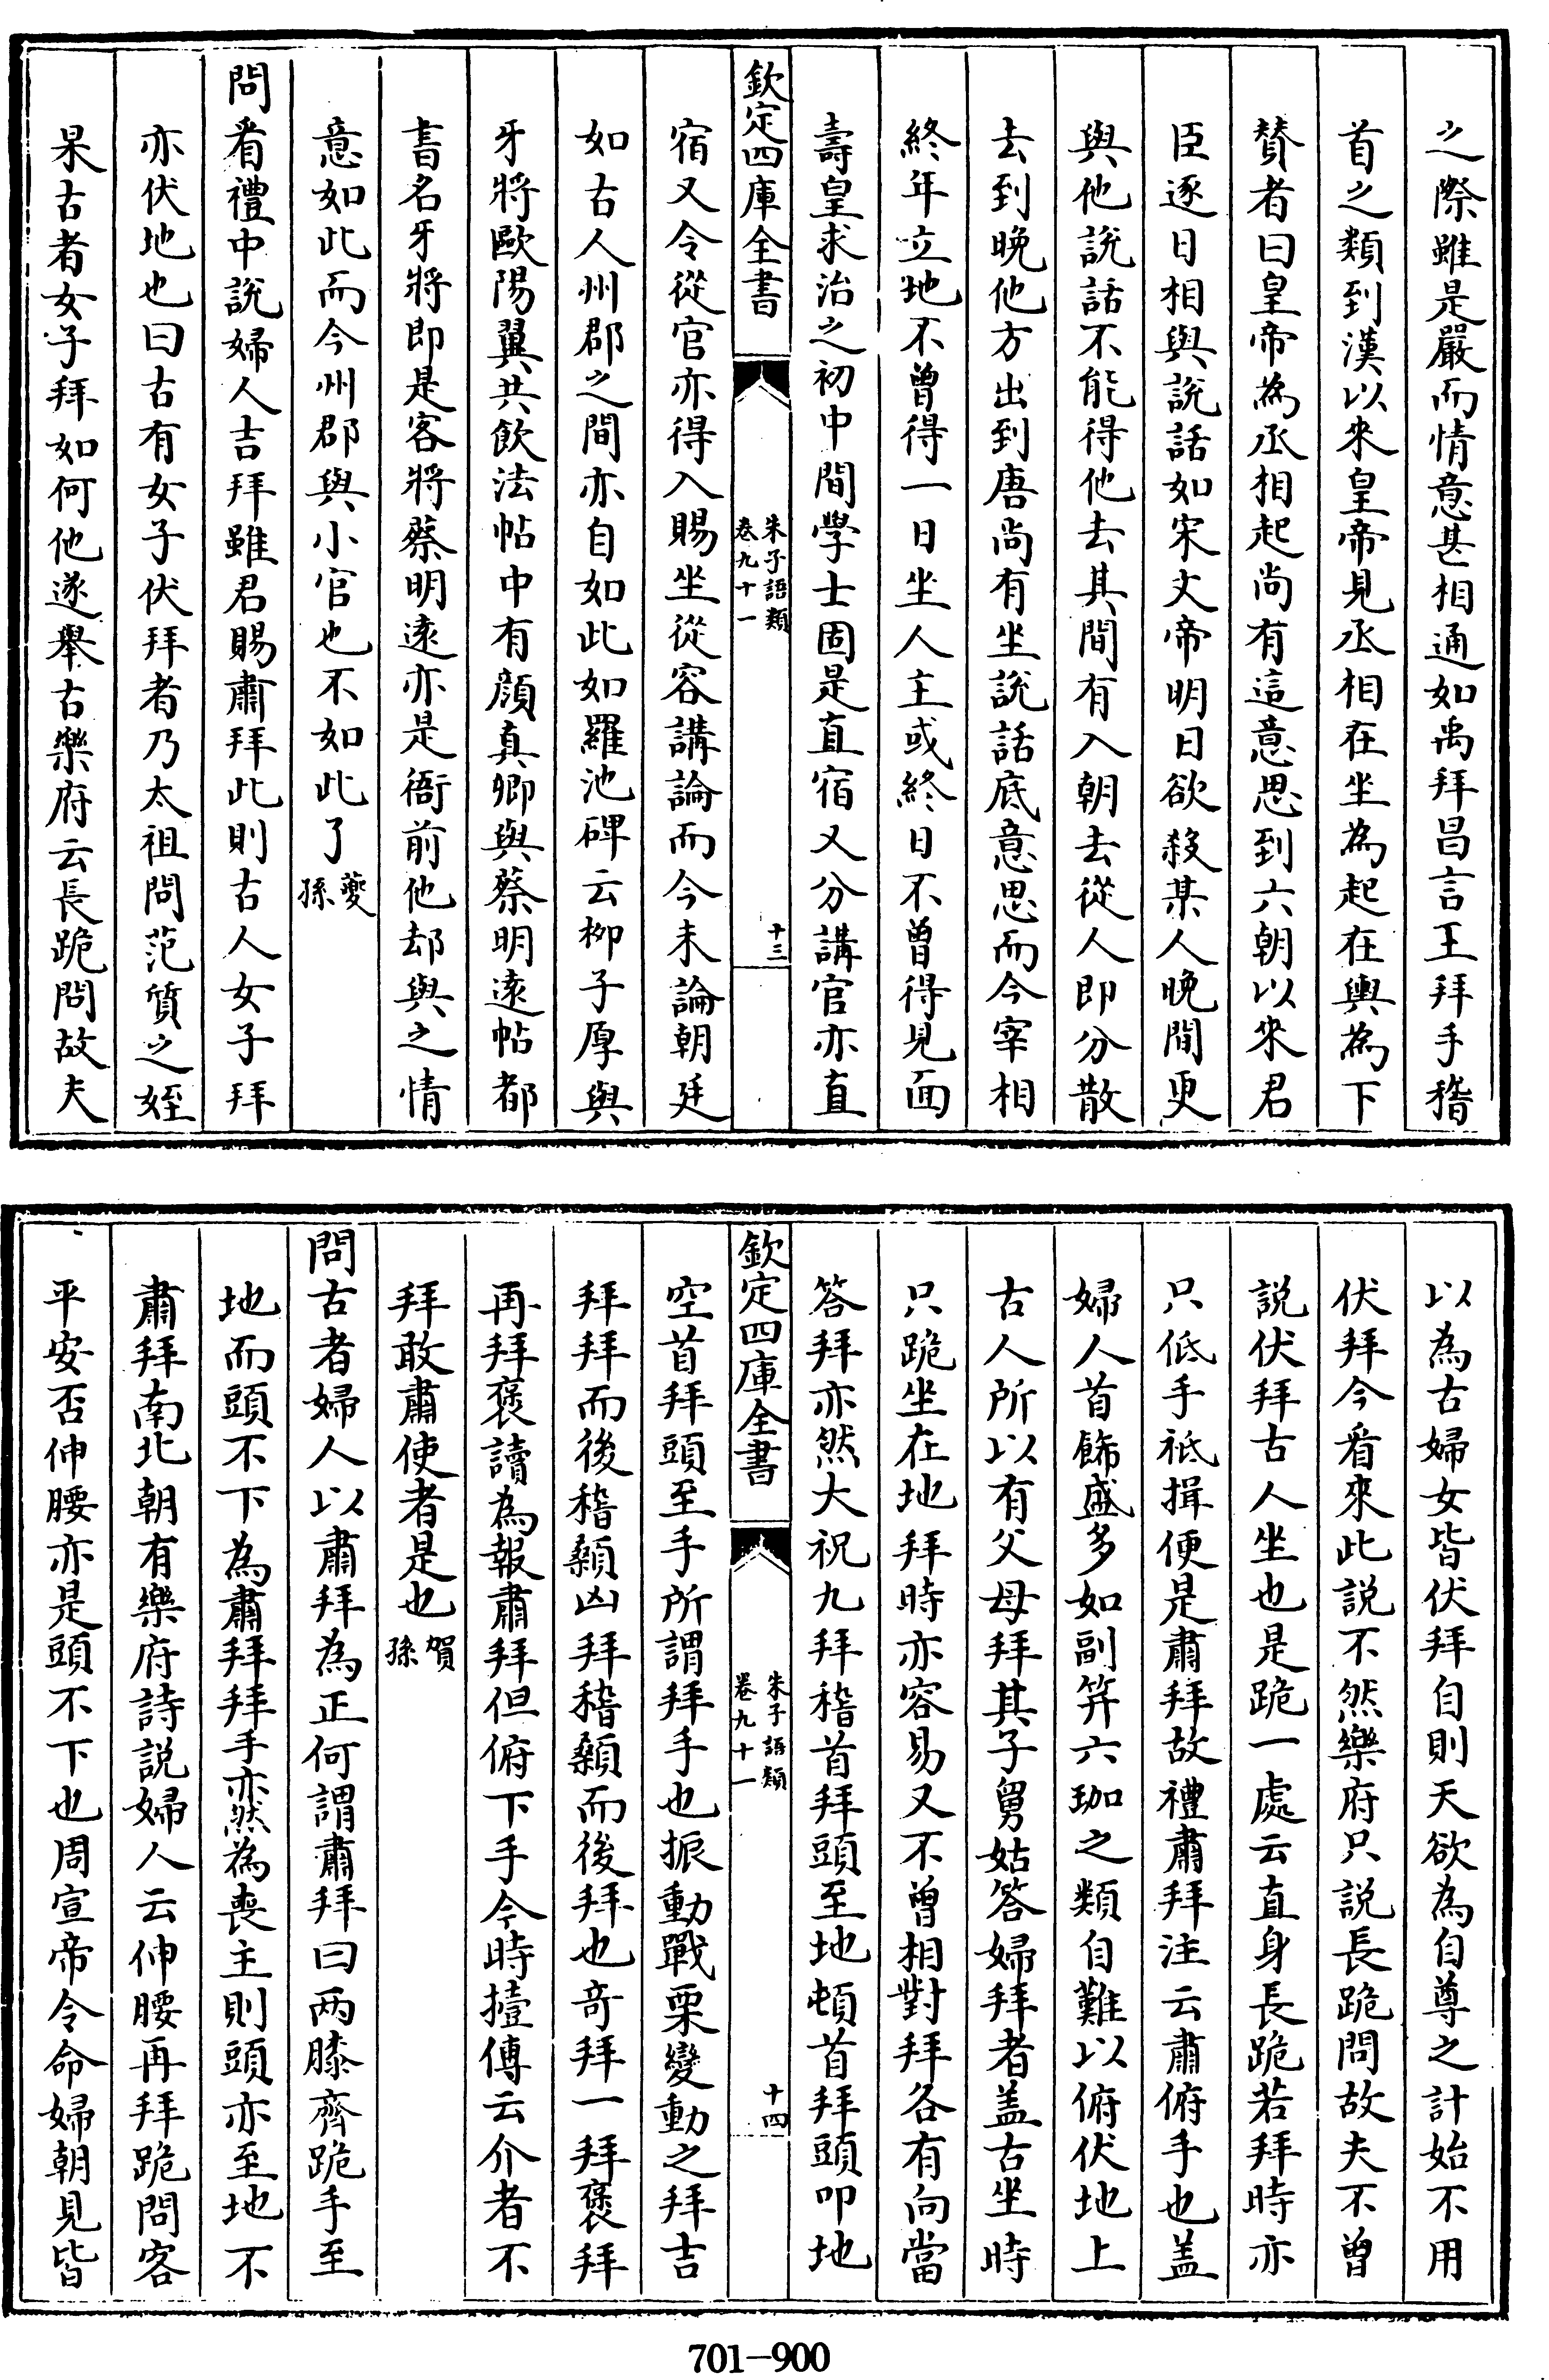 之際雖是嚴而情意甚相通如禹拜昌言王拜手稽
首之類到漢以來皇帝見丞相在坐為起在輿為下
贊者曰皇帝為丞相起尚有這意思到六朝以來君
臣逐日相與說話如宋文帝明日欲殺某人晚間更
與他說話不能得他去其間有入朝去從人即分散
去到晚他方出到唐尚有坐說話底意思而今宰相
終年立地不曾得一日坐人主或終日不曾得見面
壽皇求治之初中間學士固是直宿又分講官亦直
欽定四庫全書
朱子語類
卷九十一
十三
宿又令從官亦得入賜坐從容講論而今未論朝廷
如古人州郡之間亦自如此如羅池碑云柳子厚與
牙將歐陽翼共飲法帖中有顔真卿與蔡明遠帖都
書名牙將即是客將蔡明遠亦是衙前他却與之情
意如此而今州郡與小官也不如此了夔孫
問看禮中說婦人吉拜雖君賜肅拜此則古人女子拜
亦伏地也曰古有女子伏拜者乃太祖問范質之姪
杲古者女子拜如何他遂舉古樂府云長跪問故夫
以為古婦女皆伏拜自則天欲為自尊之計始不用
伏拜今看來此説不然樂府只説長跪問故夫不曾
説伏拜古人坐也是跪一處云直身長跪若拜時亦
只低手祗揖便是肅拜故禮肅拜注云肅俯手也盖
婦人首飾盛多如副笄六珈之類自難以俯伏地上
古人所以有父母拜其子舅姑答婦拜者盖古坐時
只跪坐在地拜時亦容易又不曾相對拜各有向當
答拜亦然大祝九拜稽首拜頭至地頓首拜頭叩地
欽定四庫全書
朱子語類
卷九十一
十四
空首拜頭至手所謂拜手也振動戰栗變動之拜吉
拜拜而後稽顙凶拜稽顙而後拜也竒拜一拜褒拜
再拜褒讀為報肅拜但俯下手今時撎傳云介者不
拜敢肅使者是也賀孫
問古者婦人以肅拜為正何謂肅拜曰两膝齊跪手至
地而頭不下為肅拜拜手亦然為喪主則頭亦至地不
肅拜南北朝有樂府詩説婦人云伸腰再拜跪問客
平安否伸腰亦是頭不下也周宣帝令命婦朝見皆
701-900